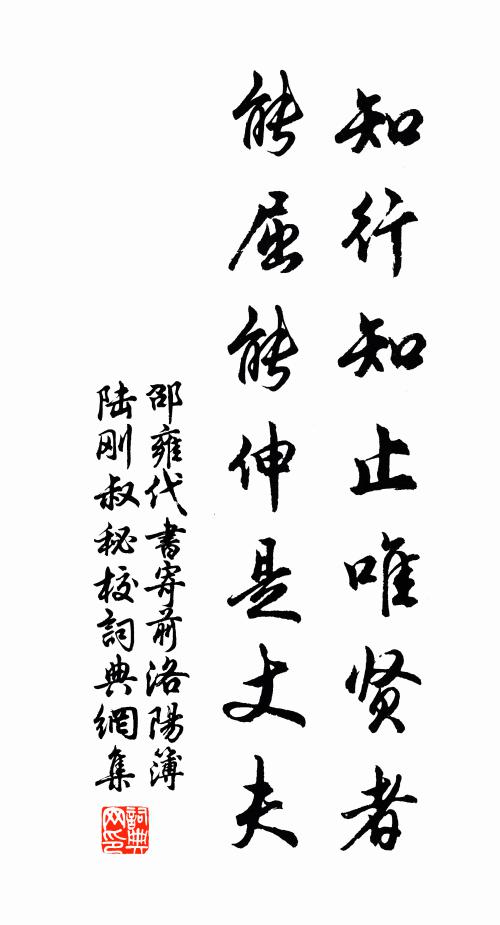 知行知止唯贤者
能屈能伸是丈夫
邵雍代書寄前洛陽簿
陆刚叔秘校詞典網集
詞典
网印